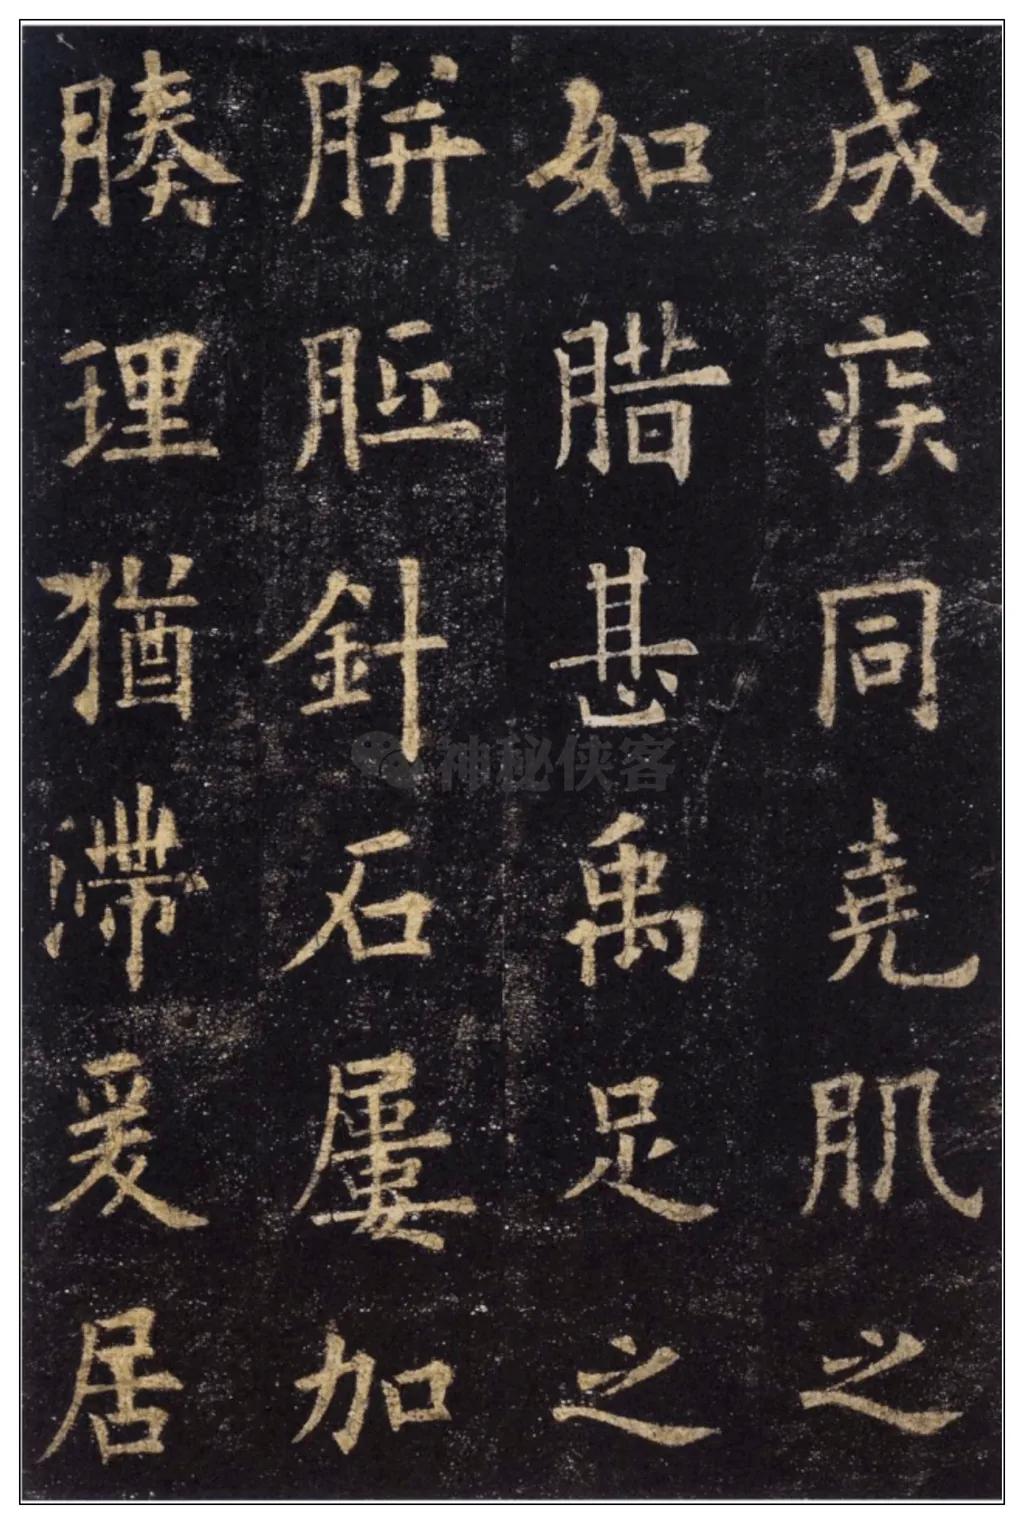 成疾同堯肌之
如腊甚禹足之
胼胝針石屢加
腠理猶滯爰居
神秘侠客